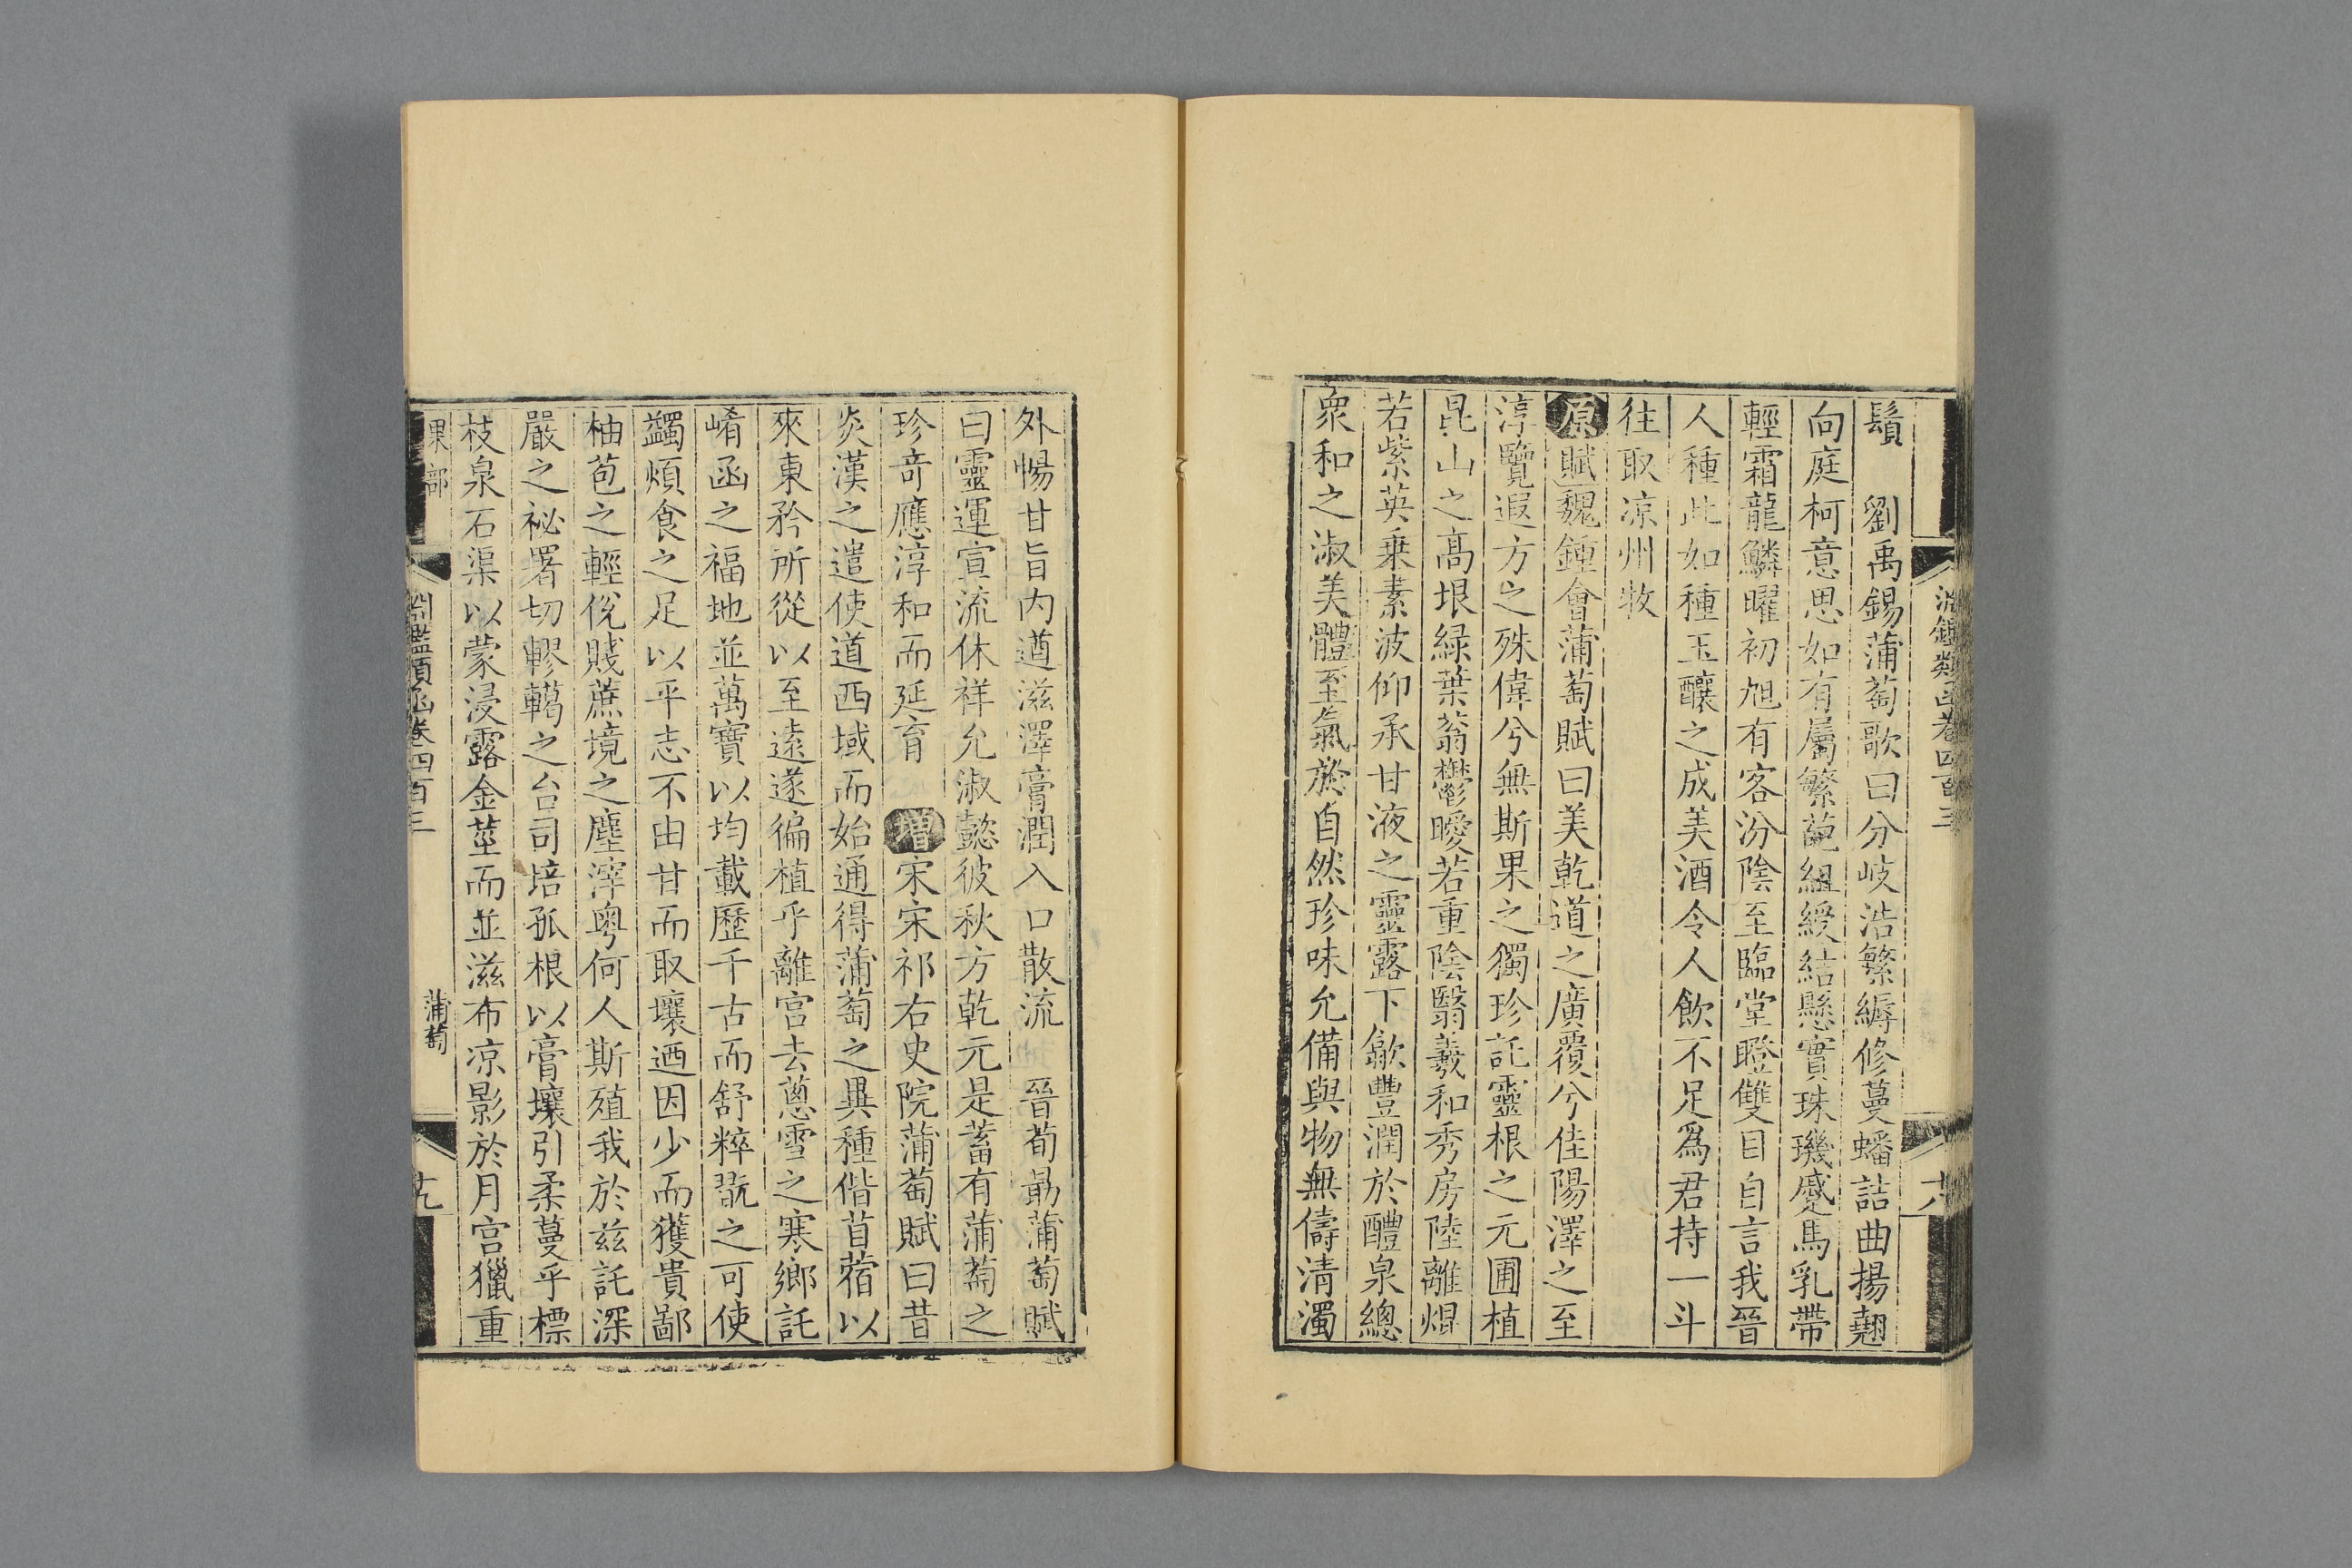 鬚　劉禹錫蒲萄歌曰分岐浩繁縟修蔓蟠詰曲揚翹
向庭柯意思如有屬繁葩組綬結懸實珠璣蹙馬乳帶
輕霜龍鱗曜初旭有客汾陰至臨堂瞪雙目自言我晉
人種此如種玉釀之成美酒令人飲不足爲君持一斗
往取凉州牧
原賦魏鍾會蒲萄賦曰美乾道之廣覆兮佳陽澤之至
淳覽遐方之殊偉兮無斯果之獨珍託靈根之元圃植
昆山之高垠緑葉蓊鬱曖若重陰翳羲和秀房陸離煜
若紫英乗素波仰承甘液之靈露下歙豐潤於醴泉總
衆和之淑美體至氣於自然珍味允備與物無儔清濁
外暢甘旨内遒滋澤膏潤入口散流　晉荀勗蒲萄賦
曰靈運宣流休祥允淑懿彼秋方乾元是蓄有蒲萄之
珍竒應淳和而延育　增宋宋祁右史院蒲萄賦曰昔
炎漢之遣使道西域而始通得蒲萄之異種偕苜蓿以
來東矜所從以至遠遂徧植乎離宫去蔥雪之寒鄉託
崤函之福地並萬寶以均載歷千古而舒粹翫之可使
蠲煩食之足以平志不由甘而取壞迺因少而獲貴鄙
柚苞之輕侻賤蔗境之塵滓粤何人斯殖我於兹託深
嚴之祕署切轇轕之台司培孤根以膏壤引柔蔓乎標
枝泉石渠以蒙浸露金莖而並滋布凉影於月宫獵重
淵鑑類函卷四百三
果部
蒲萄
十九